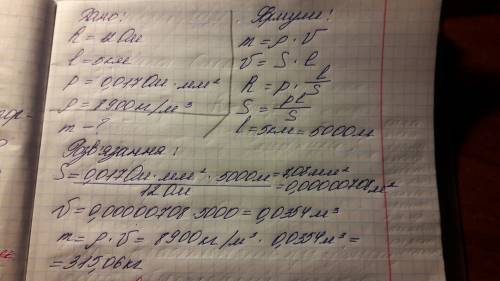 Дано:
R = 12 Ом
l = 5 км
ρ = 0,017 Ом · мм²
ρ = 8900 кг/м³
m - ?
Формули:
m = ρ · V
V = S · l
R = ρ · l/S
S = ρl/S
l = 5 км = 5000 м
Розв'язання:
S = 0,017 Ом · мм² · 5000 м / 12 Ом = 7,08 мм²
= 0,00000708 м²
V = 0,00000708 · 5000 = 0,0354 м³
m = ρ · V = 8900 кг/м³ · 0,0354 м³ =
= 315,06 кг